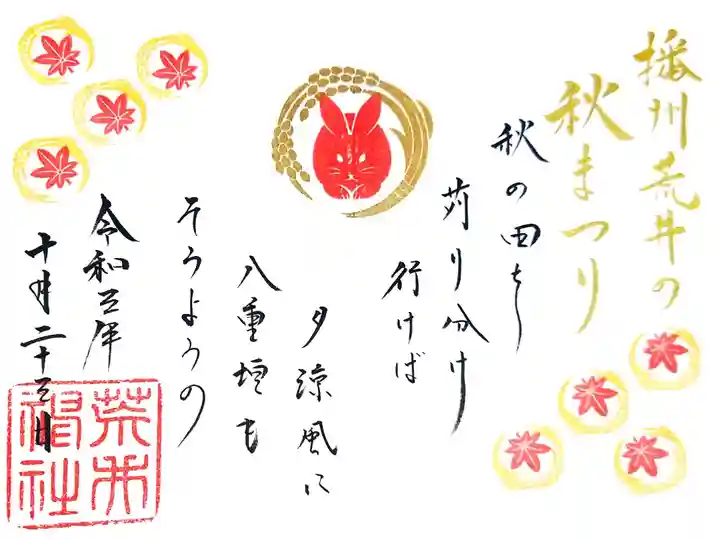 播州荒井の
秋まつり
秋の田を
苅り分け
行けば
夕涼風に
八重垣も
そうようの
令和五年
十月二十五日
荒井
神社